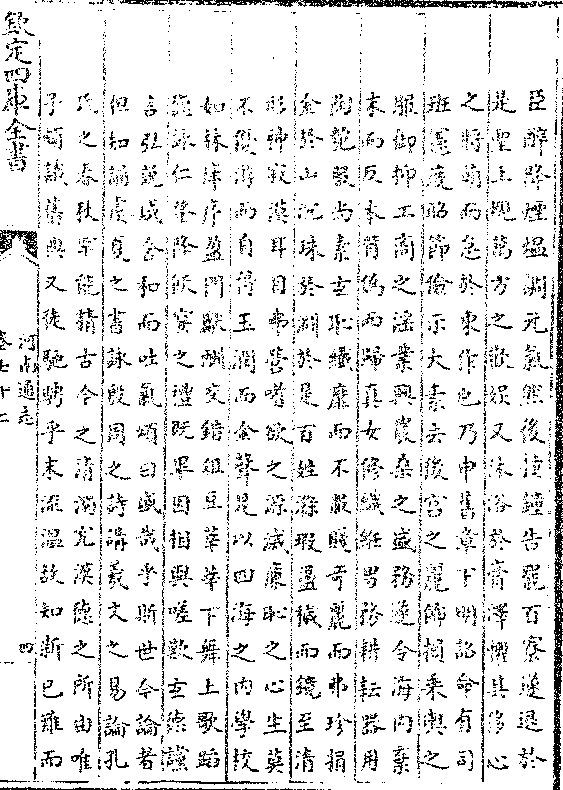 臣醉降煙熅調元氣然後撞鐘告罷百寮遂退於
是聖上覩萬方之歡娛又沐浴於膏澤懼其侈心
之將萌而怠於東作也乃申舊章下明詔命有司
班憲度昭節儉示大素去後宮之麗飾損乘輿之
服御抑工商之淫業興農桑之盛務遂令海內棄
末而反本背偽而歸真女修織紝男務耕耘器用
陶匏服尚素玄恥纖靡而不服賤奇麗而弗珍捐
金於山沈珠於淵於是百姓滌瑕盪穢而鏡至清
形神寂漠耳目弗營嗜欲之源滅廉恥之心生莫
不優游而自得玉潤而金聲是以四海之內學校
如林庠序盈門獻酬交錯俎豆莘莘下舞上歌蹈
德詠仁登降飫宴之禮既畢因相與嗟歎玄德讜
言弘說咸含和而吐氣頌曰盛哉乎斯世今論者
但知誦虞夏之書詠殷周之詩講羲文之易論孔
氏之春秋罕能精古今之清濁究漢德之所由唯
子頗識舊典又徒馳騁乎末流溫故知新已難而
欽定四庫全書
河南通志
卷七十二
四